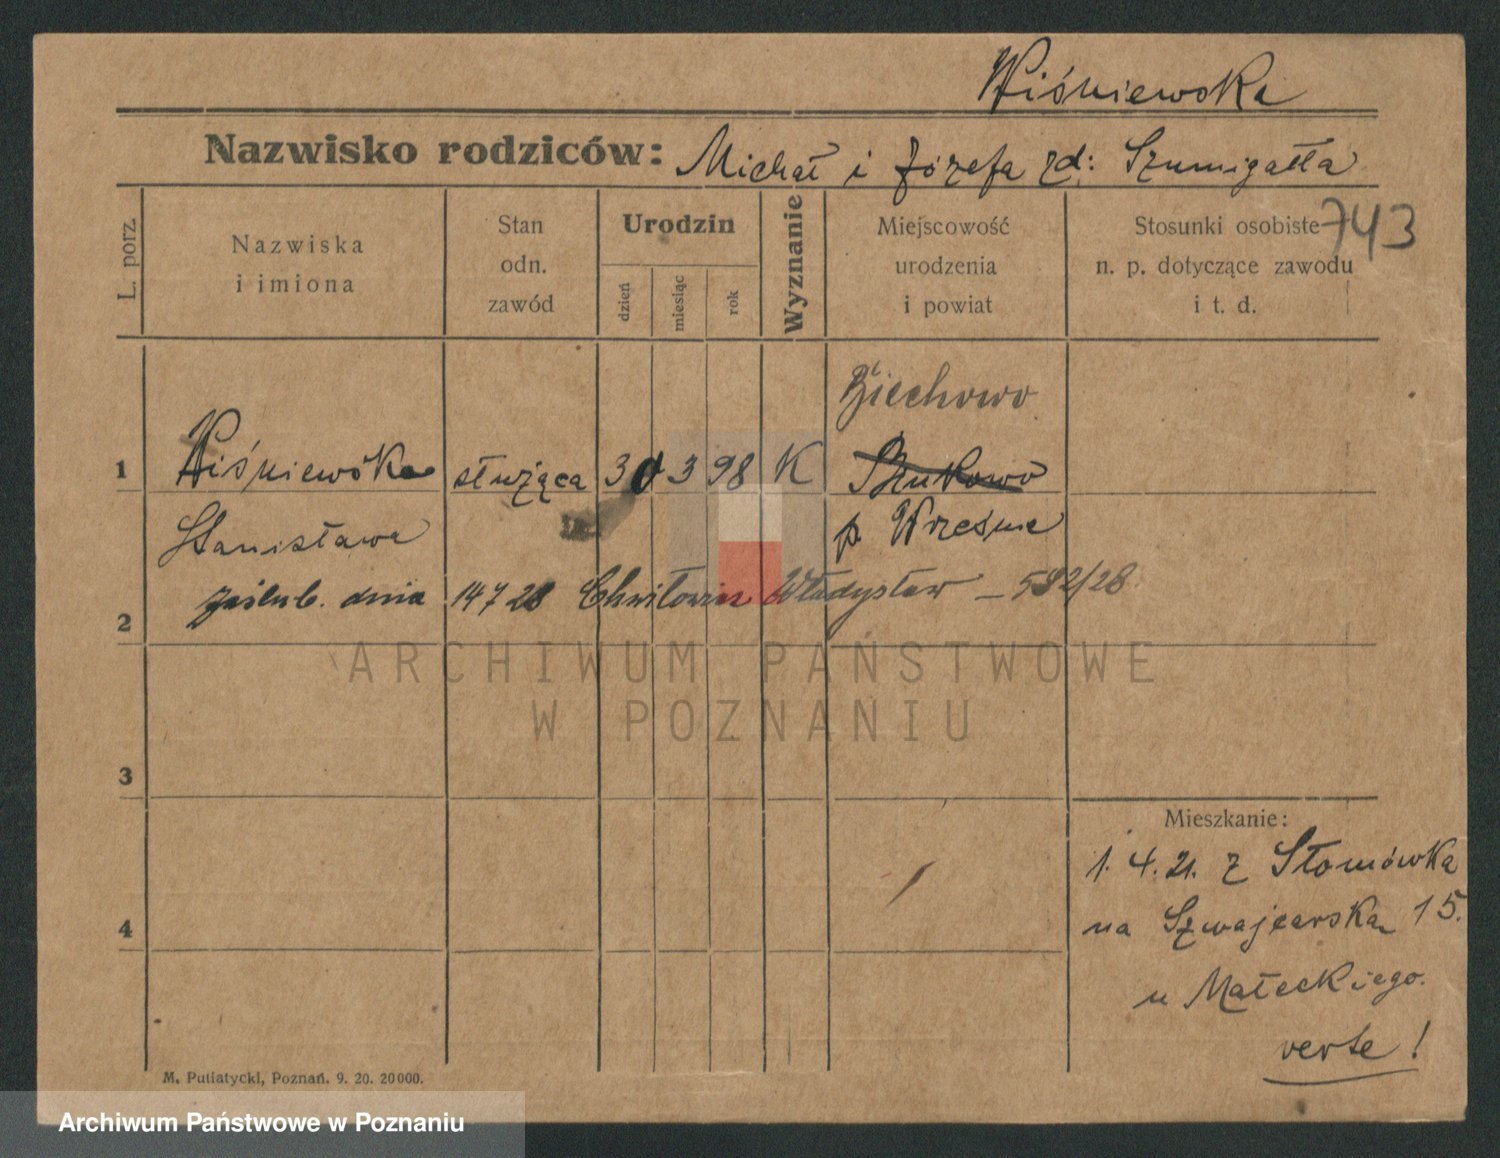 Wiśniewska
Nazwisko rodziców: Michał i Józefa zd: Szumigałła
743
L. porz.
Nazwiska
i imiona
Stan
odn.
zawód
Urodzin
dzień
miesiąc
rok
Wyznanie
Miejscowość
urodzenia
i powiat
Stosunki osobiste
n. p. dotyczące zawodu
i t. d.
Biechowo
1 Wiśniewska służąca 30 3 98 K
Stanisława p. Wrześnie
zaślub. dnia 14 7 28 Chwiłowicz Władysław – 592/28
2
ARCHIWUM PAŃSTWOWE
W POZNANIU
3
Mieszkanie:
1. 4. 21. z Słomówka
na Szwajcarska 15.
4
u Małeckiego.
verte!
M. Putiatycki, Poznań. 9. 20. 20 000.
Archiwum Państwowe w Poznaniu